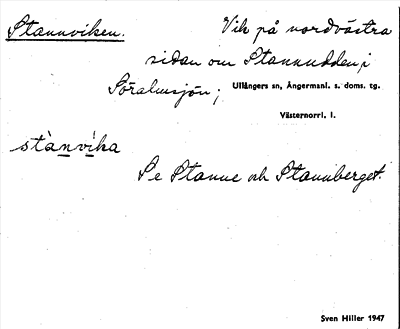 Stannviken. Vik på nordvästra
sidan om Stannudden i
Söralunsjön; Ullångers sn, Ångermanl. s. doms. tg.
Västernorrl. l.
stànvíka
Se Stanne och Stannberget.
Sven Hiller 1947